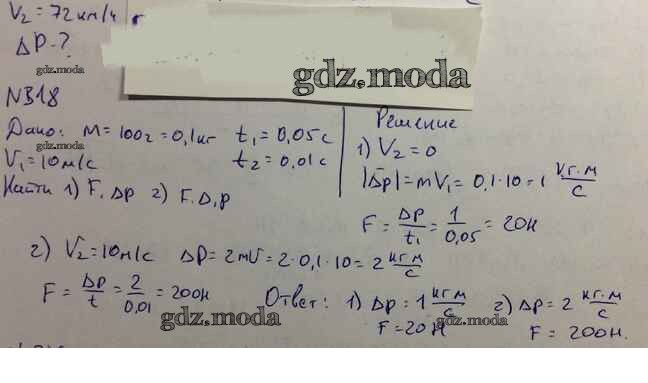 V₂ = 72 км/ч
ΔP - ?
gdz.moda
gdz.moda
N318
Дано: m = 100г = 0,1кг t₁ = 0,05с
gdz.moda
V₁ = 10м/с t₂ = 0,01с
Найти 1) F, Δp 2) F, Δ,p
Решение
1) V₂ = 0
|Δp| = mV₁ = 0,1·10 = 1 кг·м/с
F = Δp/t₁ = 1/0,05 = 20Н
2) V₂ = 10м/с Δp = 2mV = 2·0,1·10 = 2 кг·м/с
F = Δp/t = 2/0,01 = 200Н
Ответ: 1) Δp = 1 кг·м/с 2) Δp = 2 кг·м/с
F = 20Н F = 200Н.
gdz.moda
gdz.moda